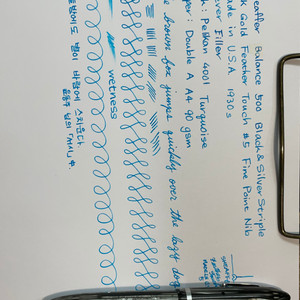 eaffer Balance 500 Black & Silver Striple
k Gold Feather Touch #5 Fine Point Nib
ade in U.S.A 1930s
ver Filler
k : Pelikan 4001 Turquoise
per : Double A A4 90 gsm
e brown fox jumps quickly over the lazy dog
wetness
밤에도 별이 바람에 스치운다
윤동주 님의 「서시」 中